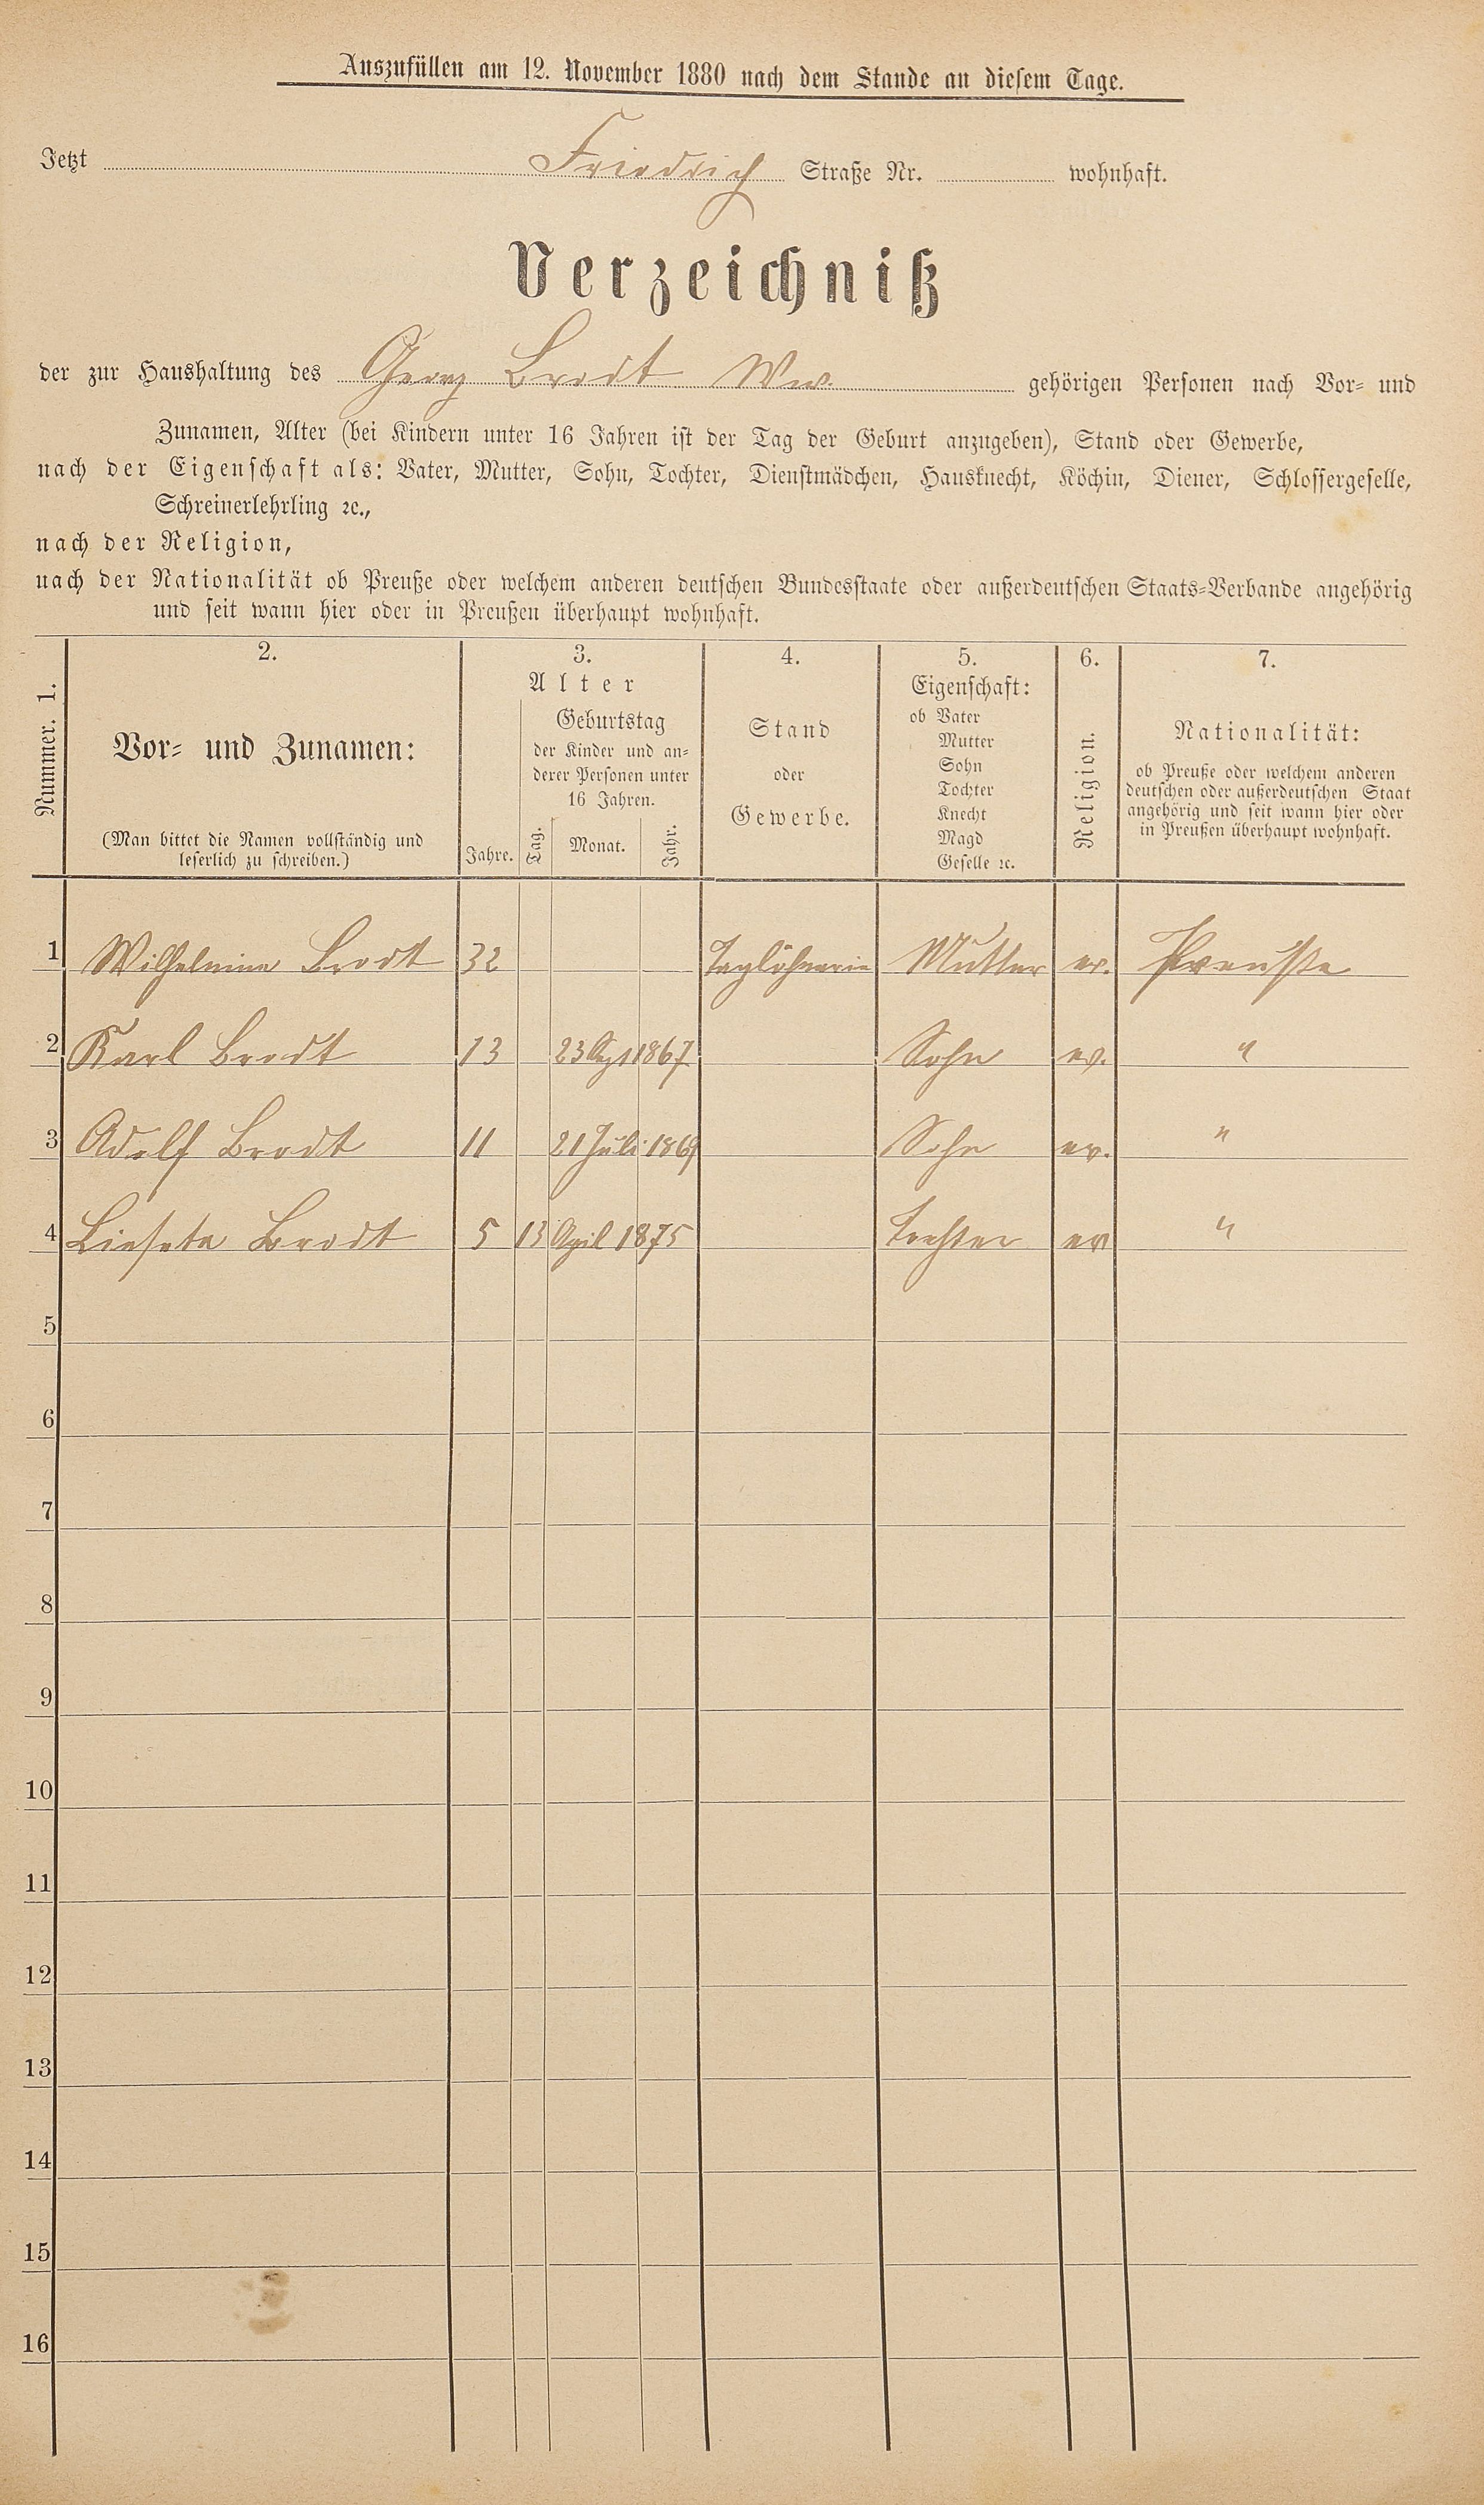 Auszufüllen am 12. November 1880 nach dem Stande an diesem Tage.
Jetzt Friedrich Straße Nr. wohnhaft.
Verzeichniß
der zur Haushaltung des Georg Brodt Ww. gehörigen Personen nach Vor- und
Zunamen, Alter (bei Kindern unter 16 Jahren ist der Tag der Geburt anzugeben), Stand oder Gewerbe,
nach der Eigenschaft als: Vater, Mutter, Sohn, Tochter, Dienstmädchen, Hausknecht, Köchin, Diener, Schlossergeselle,
Schreinerlehrling ꝛc.,
nach der Religion,
nach der Nationalität ob Preuße oder welchem anderen deutschen Bundesstaate oder außerdeutschen Staats-Verbande angehörig
und seit wann hier oder in Preußen überhaupt wohnhaft.
Nummer. 1.
2.
Vor- und Zunamen:
(Man bittet die Namen vollständig und
leserlich zu schreiben.)
3.
Alter
Jahre.
Geburtstag
der Kinder und an-
derer Personen unter
16 Jahren.
Tag. Monat. Jahr.
4.
Stand
oder
Gewerbe.
5.
Eigenschaft:
ob Vater
Mutter
Sohn
Tochter
Knecht
Magd
Geselle ꝛc.
6.
Religion.
7.
Nationalität:
ob Preuße oder welchem anderen
deutschen oder außerdeutschen Staat
angehörig und seit wann hier oder
in Preußen überhaupt wohnhaft.
1 Wilhelmine Brodt 32 Taglöhnerin Mutter ev. Preußse
2 Karl Brodt 13 23 Sept 1867 Sohn ev. "
3 Adolf Brodt 11 21 Juli 1869 Sohn ev. "
4 Liesete Brodt 5 13 April 1875 Tochter ev "
5
6
7
8
9
10
11
12
13
14
15
16